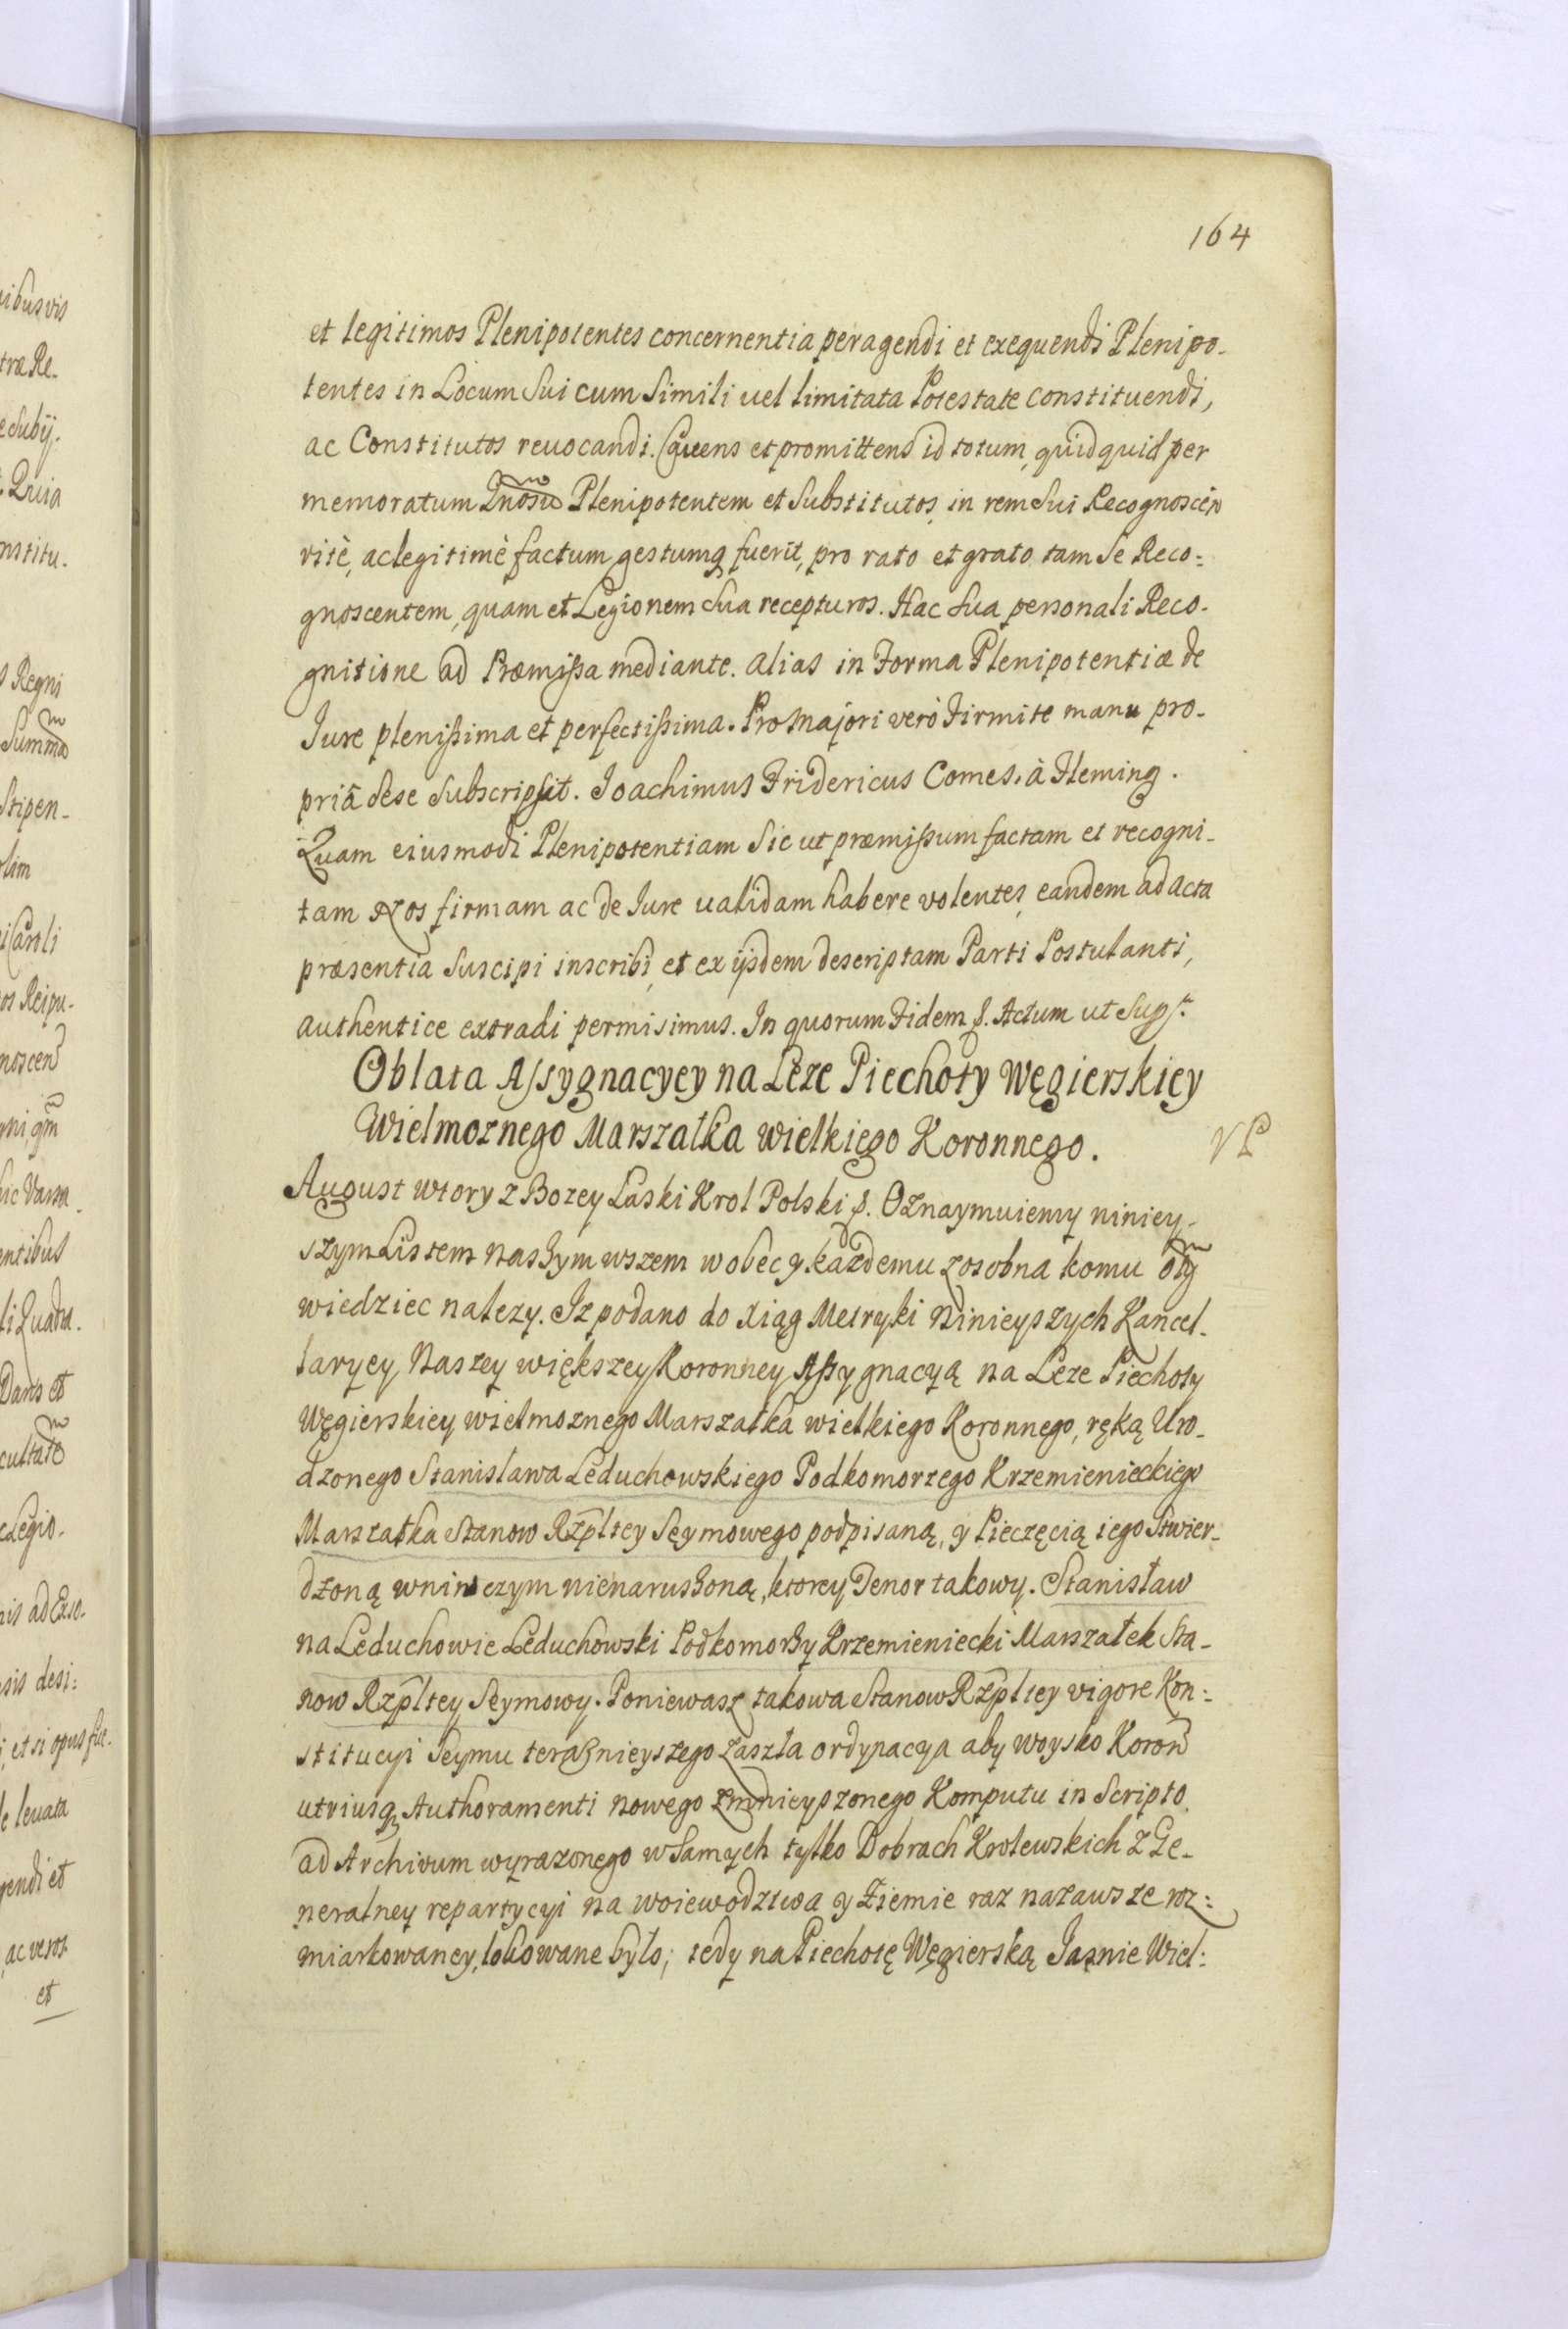 164
et legitimos Plenipotentes concernentia peragendi et exequendi Plenipo-
tentes in Locum Sui cum Simili uel limitata Potestate constituendi,
ac Constitutos reuocandi. Cauens et promittens id totum, quidquid per
memoratum Plenipotentem et Substitutos, in rem Sui Recognoscen
ritè, ac legitimè factum gestumq fuerit, pro rato et grato tam Se Reco:
gnoscentem, quam et Legionem Sua recepturos. Hac Sua personali Reco-
gnitione ad Præmissa mediante. alias in Forma Plenipotentiæ de
Jure plenissima et perfectissima. Pro Majori verò Firmite manu pro-
priâ Sese Subscripsit. Joachimus Fridericus Comes à Fleming.
Quam eiusmodi Plenipotentiam Sic ut præmissum factam et recogni-
tam Nos firmam ac de Jure ualidam habere volentes, eandem ad acta
præsentia Suscipi inscribi, et ex ijsdem descriptam Parti Postulanti,
authentice extradi permisimus. In quorum Fidem &. Actum ut Supr.
Oblata Assygnacyey na Leze Piechoty Węgierskiey
Wielmoznego Marszałka wielkiego Koronnego.
August wtory z Bozey Łaski Krol Polski &. Oznaymuiemy niniey-
szym Listem naszym wszem wobec y kazdemu zosobna komu oty
wiedziec nalezy. Jz podano do Xiąg Metryki Ninieyszych Kancel-
laryey Naszey większey Koronney Assygnacyą na Leze Piechoty
Węgierskiey wielmoznego Marszałka wielkiego Koronnego, ręką Uro-
dzonego Stanisława Leduchowskiego Podkomorzego Krzemienieckiego
Marszałka Stanow Rzpltey Seymowego podpisaną, y Pieczęcią iego Stwier-
dzoną wniwczym nienaruszoną, ktorey Tenor takowy. Stanisław
na Leduchowie Leduchowski Podkomorzy Krzemieniecki Marszałek Sta-
now Rzpltey Seymowy. Poniewasz takowa Stanow Rzpltey vigore Kon:
stitucyi Seymu teraznieyszego zaszła ordynacya aby woysko Koron
utriusq Authoramenti nowego zmnieyszonego Komputu in Scripto
ad Archivum wyrazonego w Samych tylko Dobrach Krolewskich z Ge-
neralney repartycyi na woiewodztwa y Ziemie raz nazawsze roz:
miarkowaney, lokowane było; tedy na Piechotę Węgierską Jasnie Wiel: